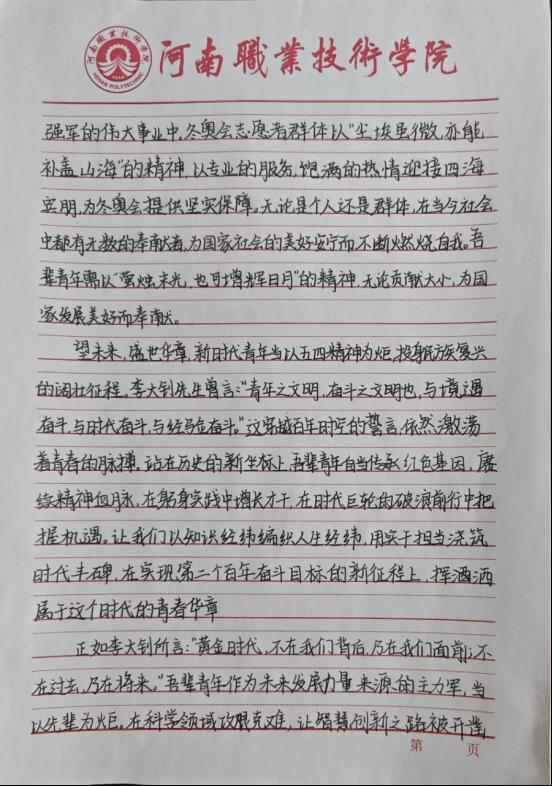 河南職業技術學院
河南職業技術學院
HENAN POLYTECHNIC
强军的伟大事业中,冬奥会志愿者群体以“尘埃虽微,亦能
补盖山海”的精神,以专业的服务,饱满的热情迎接四海
宾朋,为冬奥会提供坚实保障。无论是个人还是群体,在当今社会
中都有无数的奉献者,为国家社会的美好安宁而不断燃烧自我。吾
辈青年需以“萤烛末光,也可增辉日月”的精神,无论贡献大小,为国
家发展美好而奉献。
望未来,盛世华章,新时代青年当以五四精神为炬,投身民族复兴
的阔壮征程。李大钊先生曾言:“青年之文明,奋斗之文明也,与境遇
奋斗,与时代奋斗,与经验奋斗。”这穿越百年时空的誓言,依然激荡
着青春的脉搏。站在历史的新坐标上,吾辈青年自当传承红色基因,赓
续精神血脉,在躬身实践中增长才干,在时代巨轮的破浪前行中把
握机遇。让我们以知识经纬编织人生经纬,用实干担当浇筑
时代丰碑,在实现第二个百年奋斗目标的新征程上,挥洒洒
属于这个时代的青春华章
正如李大钊所言:“黄金时代,不在我们背后,乃在我们面前;不
在过去,乃在将来。”吾辈青年作为未来发展力量来源的主力军,当
以先辈为炬。在科学领域攻艰克难,让智慧创新之路被开凿
第 页